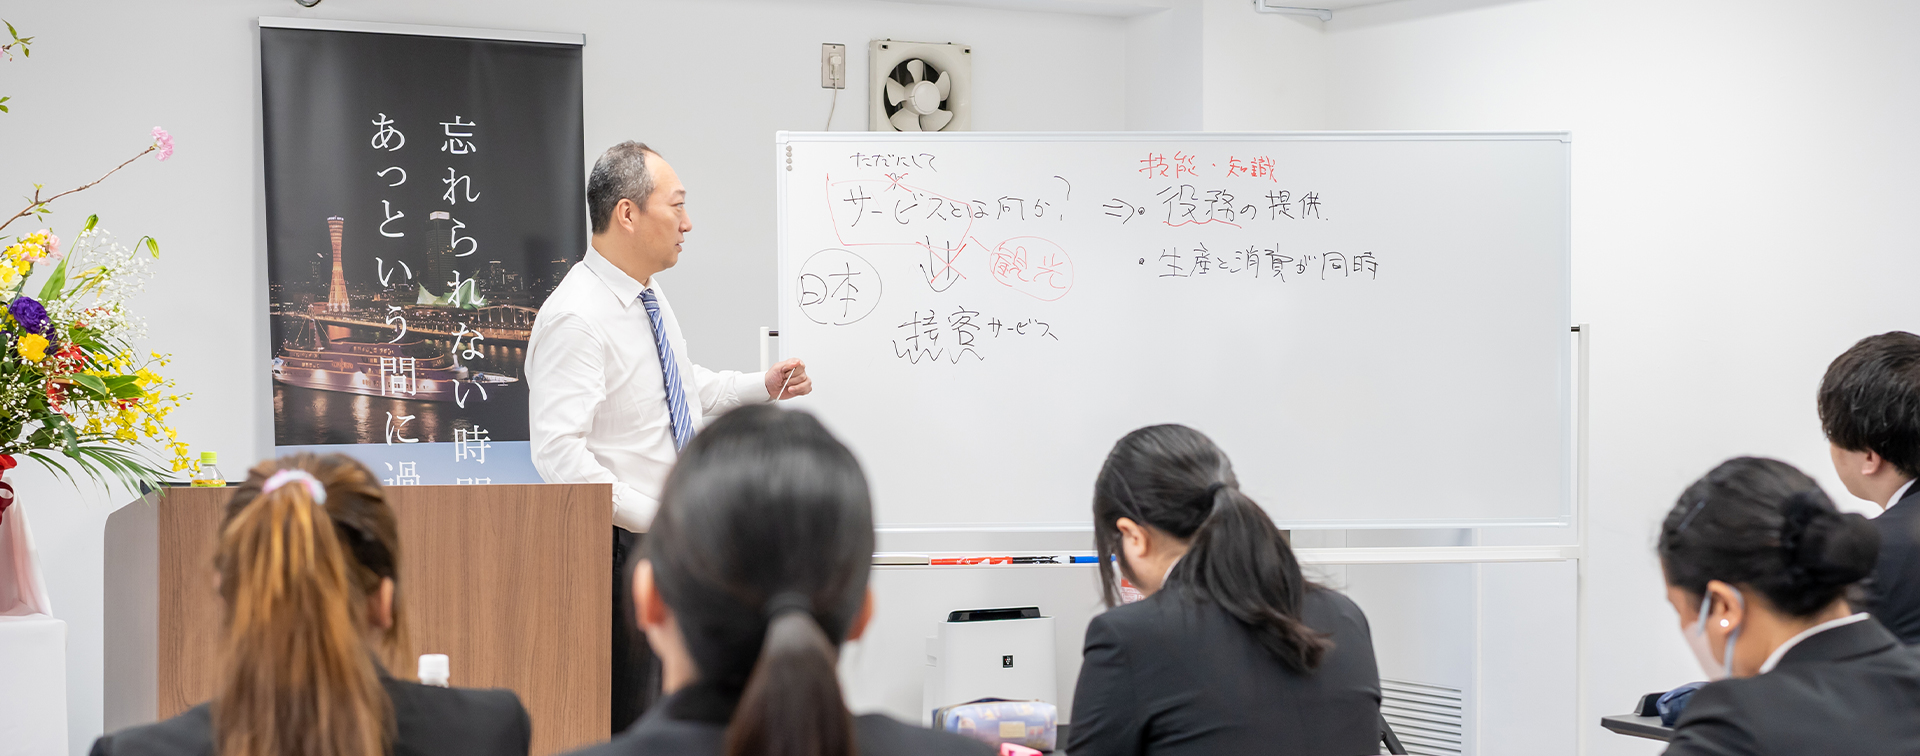 忘れられない時間
あっという間に過
ただにして
サービスとは何か？
日本
観光
接客サービス
技能・知識
⇒・役務の提供．
・生産と消費が同時